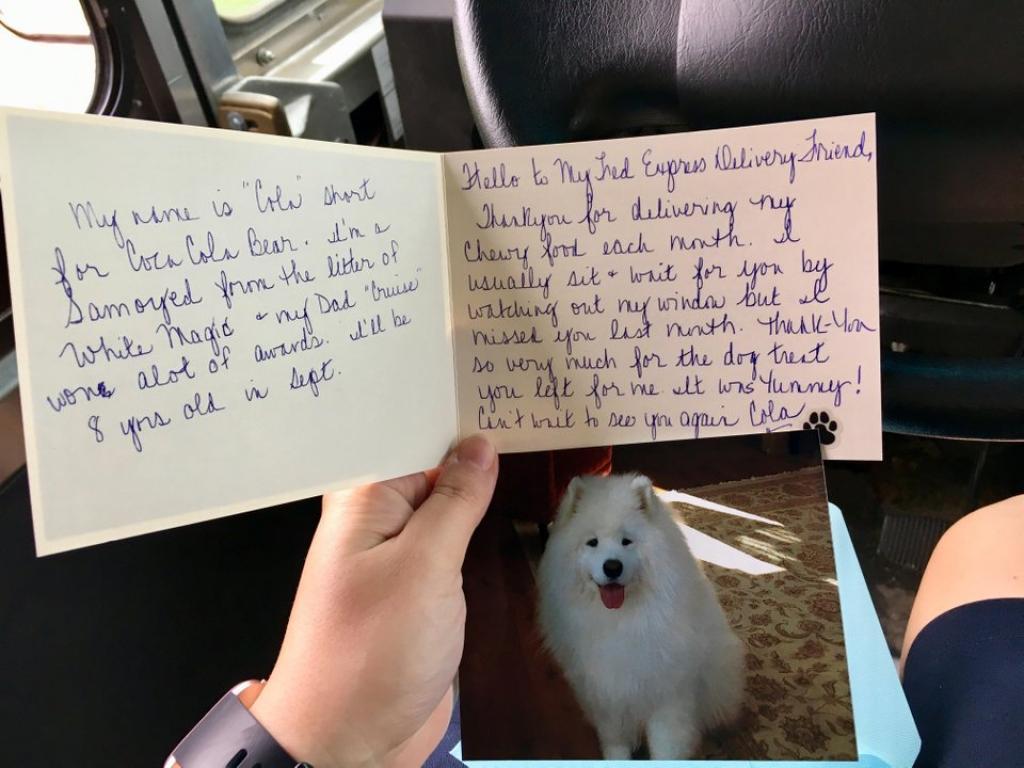 My name is "Cola" short
for Coca Cola Bear. I'm a
Samoyed from the litter of
White Magic & my Dad "Cruise"
wone alot of awards. I'll be
8 yrs old in Sept.
Hello to My Fed Express Delivery Friend,
Thankyou for delivering my
Chewy food each month. I
usually sit & wait for you by
watching out my window but I
missed you last month. Thank-You
so very much for the dog treat
you left for me. It was Yummy!
Can't wait to see you again Cola